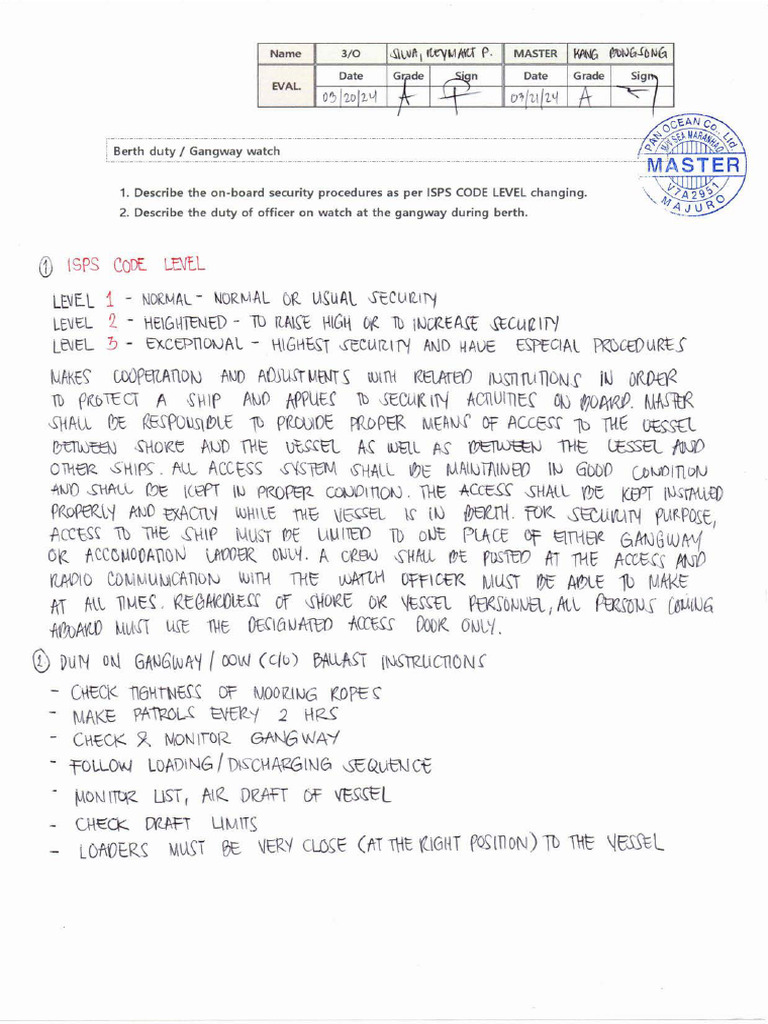 Name 3/O SILVA, REYMART P. MASTER KANG BONGSONG
EVAL. Date Grade Sign Date Grade Sign
03/20/24 A 03/21/24 A
Berth duty / Gangway watch
PAN OCEAN CO., Ltd.
M/V SEA MARANHAO
MASTER
V7A2951
MAJURO
1. Describe the on-board security procedures as per ISPS CODE LEVEL changing.
2. Describe the duty of officer on watch at the gangway during berth.
① ISPS CODE LEVEL
LEVEL 1 - NORMAL - NORMAL OR USUAL SECURITY
LEVEL 2 - HEIGHTENED - TO RAISE HIGH OR TO INCREASE SECURITY
LEVEL 3 - EXCEPTIONAL - HIGHEST SECURITY AND HAVE ESPECIAL PROCEDURES
MAKES COOPERATION AND ADJUSTMENTS WITH RELATED INSTITUTIONS IN ORDER
TO PROTECT A SHIP AND APPLIES TO SECURITY ACTIVITIES ON BOARD. MASTER
SHALL BE RESPONSIBLE TO PROVIDE PROPER MEANS OF ACCESS TO THE VESSEL
BETWEEN SHORE AND THE VESSEL AS WELL AS BETWEEN THE VESSEL AND
OTHER SHIPS. ALL ACCESS SYSTEM SHALL BE MAINTAINED IN GOOD CONDITION
AND SHALL BE KEPT IN PROPER CONDITION. THE ACCESS SHALL BE KEPT INSTALLED
PROPERLY AND EXACTLY WHILE THE VESSEL IS IN BERTH. FOR SECURITY PURPOSE,
ACCESS TO THE SHIP MUST BE LIMITED TO ONE PLACE OF EITHER GANGWAY
OR ACCOMODATION LADDER ONLY. A CREW SHALL BE POSTED AT THE ACCESS AND
RADIO COMMUNICATION WITH THE WATCH OFFICER MUST BE ABLE TO MAKE
AT ALL TIMES. REGARDLESS OF SHORE OR VESSEL PERSONNEL, ALL PERSONS COMING
ABOARD MUST USE THE DESIGNATED ACCESS DOOR ONLY.
② DUTY ON GANGWAY / OOW (C/O) BALLAST INSTRUCTIONS
- CHECK TIGHTNESS OF MOORING ROPES
- MAKE PATROLS EVERY 2 HRS
- CHECK & MONITOR GANGWAY
- FOLLOW LOADING / DISCHARGING SEQUENCE
- MONITOR LIST, AIR DRAFT OF VESSEL
- CHECK DRAFT LIMITS
- LOADERS MUST BE VERY CLOSE (AT THE RIGHT POSITION) TO THE VESSEL